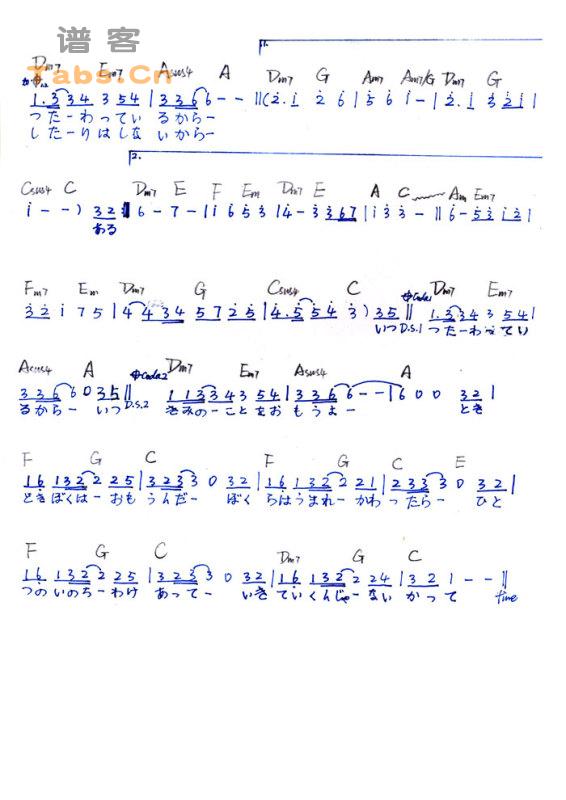 谱客
Tabs.Cn
1.
Dm7 Em7 Asus4 A Dm7 G Am7 Am7/G Dm7 G
1.334 354|3366--||(2.i 26|56i-|2.i 32i|
つたーわっている から ー
したーりはしな いから ー
2.
Csus4 C Dm7 E F Em Dm7 E A C Am Em7
i--) 32:||6-7-|i653|4-3367|i33-||6-53i2|
ある
Fm7 Em Dm7 G Csus4 C Coda1 Dm7 Em7
32i75|4434 5725|4.5543) 35||1.334 354|
いつ D.S.1 つたーわってい
Asus4 A Coda2 Dm7 Em7 Asus4 A
3366035||113343 54|3366--|600 32|
るからー いつ D.S.2 きみのーことをおもうよー とき
F G C F G C E
16 1322 225|32330 32|16 1322 221|23330 32|
ときぼくはーおもうんだー ぼくらはうまれーかわったらー ひと
F G C Dm7 G C
16 1322 225|32330 32|16 1322 224|321--||
つのいのちーわけあってー いきていくんじゃーないかって fine